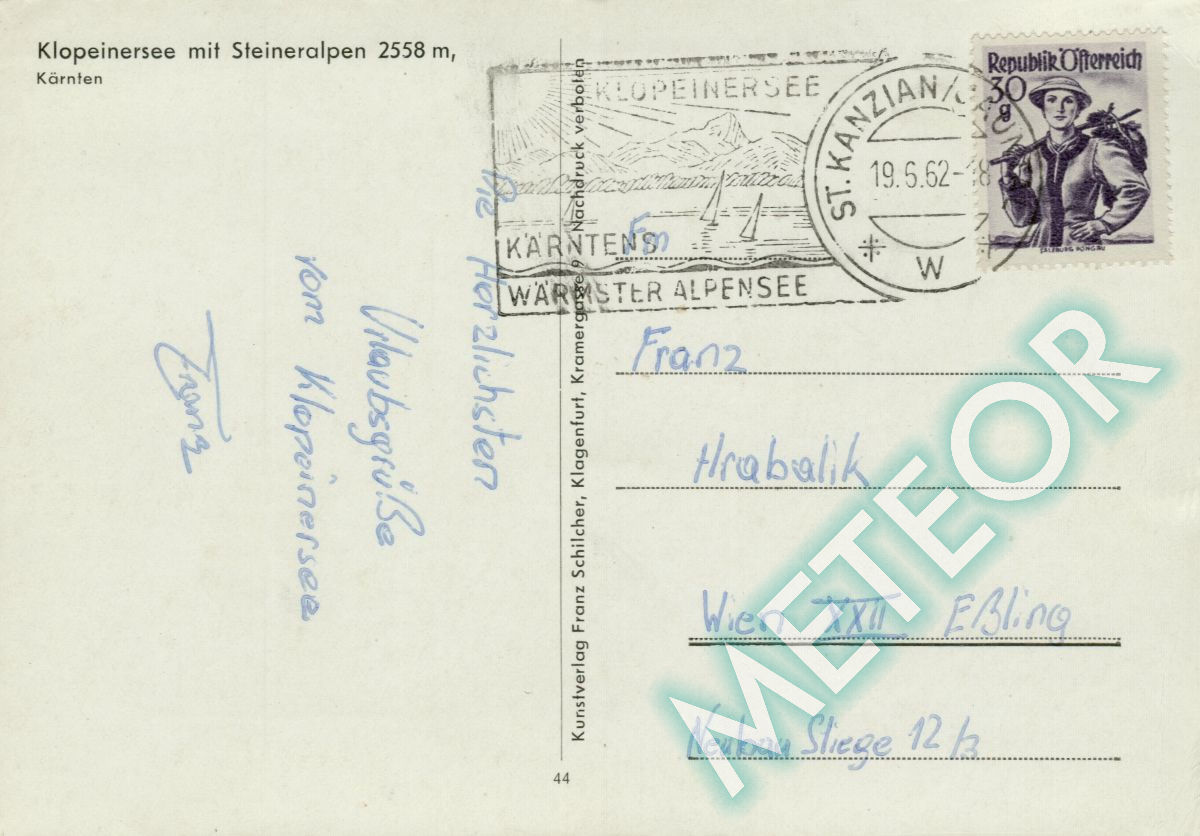 Klopeinersee mit Steineralpen 2558 m,
Kärnten
Die Herzlichsten
Urlaubsgrüße
vom Klopeinersee
Franz
Kunstverlag Franz Schilcher, Klagenfurt, Kramergasse 9 Nachdruck verboten
44
KLOPEINERSEE
KÄRNTENS
WÄRMSTER ALPENSEE
ST. KANZIAN/
19.6.62-18
W
Republik Österreich
30
g
SALZBURG PONGAU
Fm
Franz
Hrabalik
Wien XXII Eßling
Neubau Stiege 12/3
METEOR